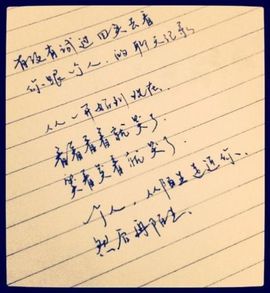 有没有试过回头去看
你跟一个人，的聊天记录
从一开始到现在.
看着看着就笑了
笑着笑着就哭了.
一个人，从陌生走近你、
然后再陌生.